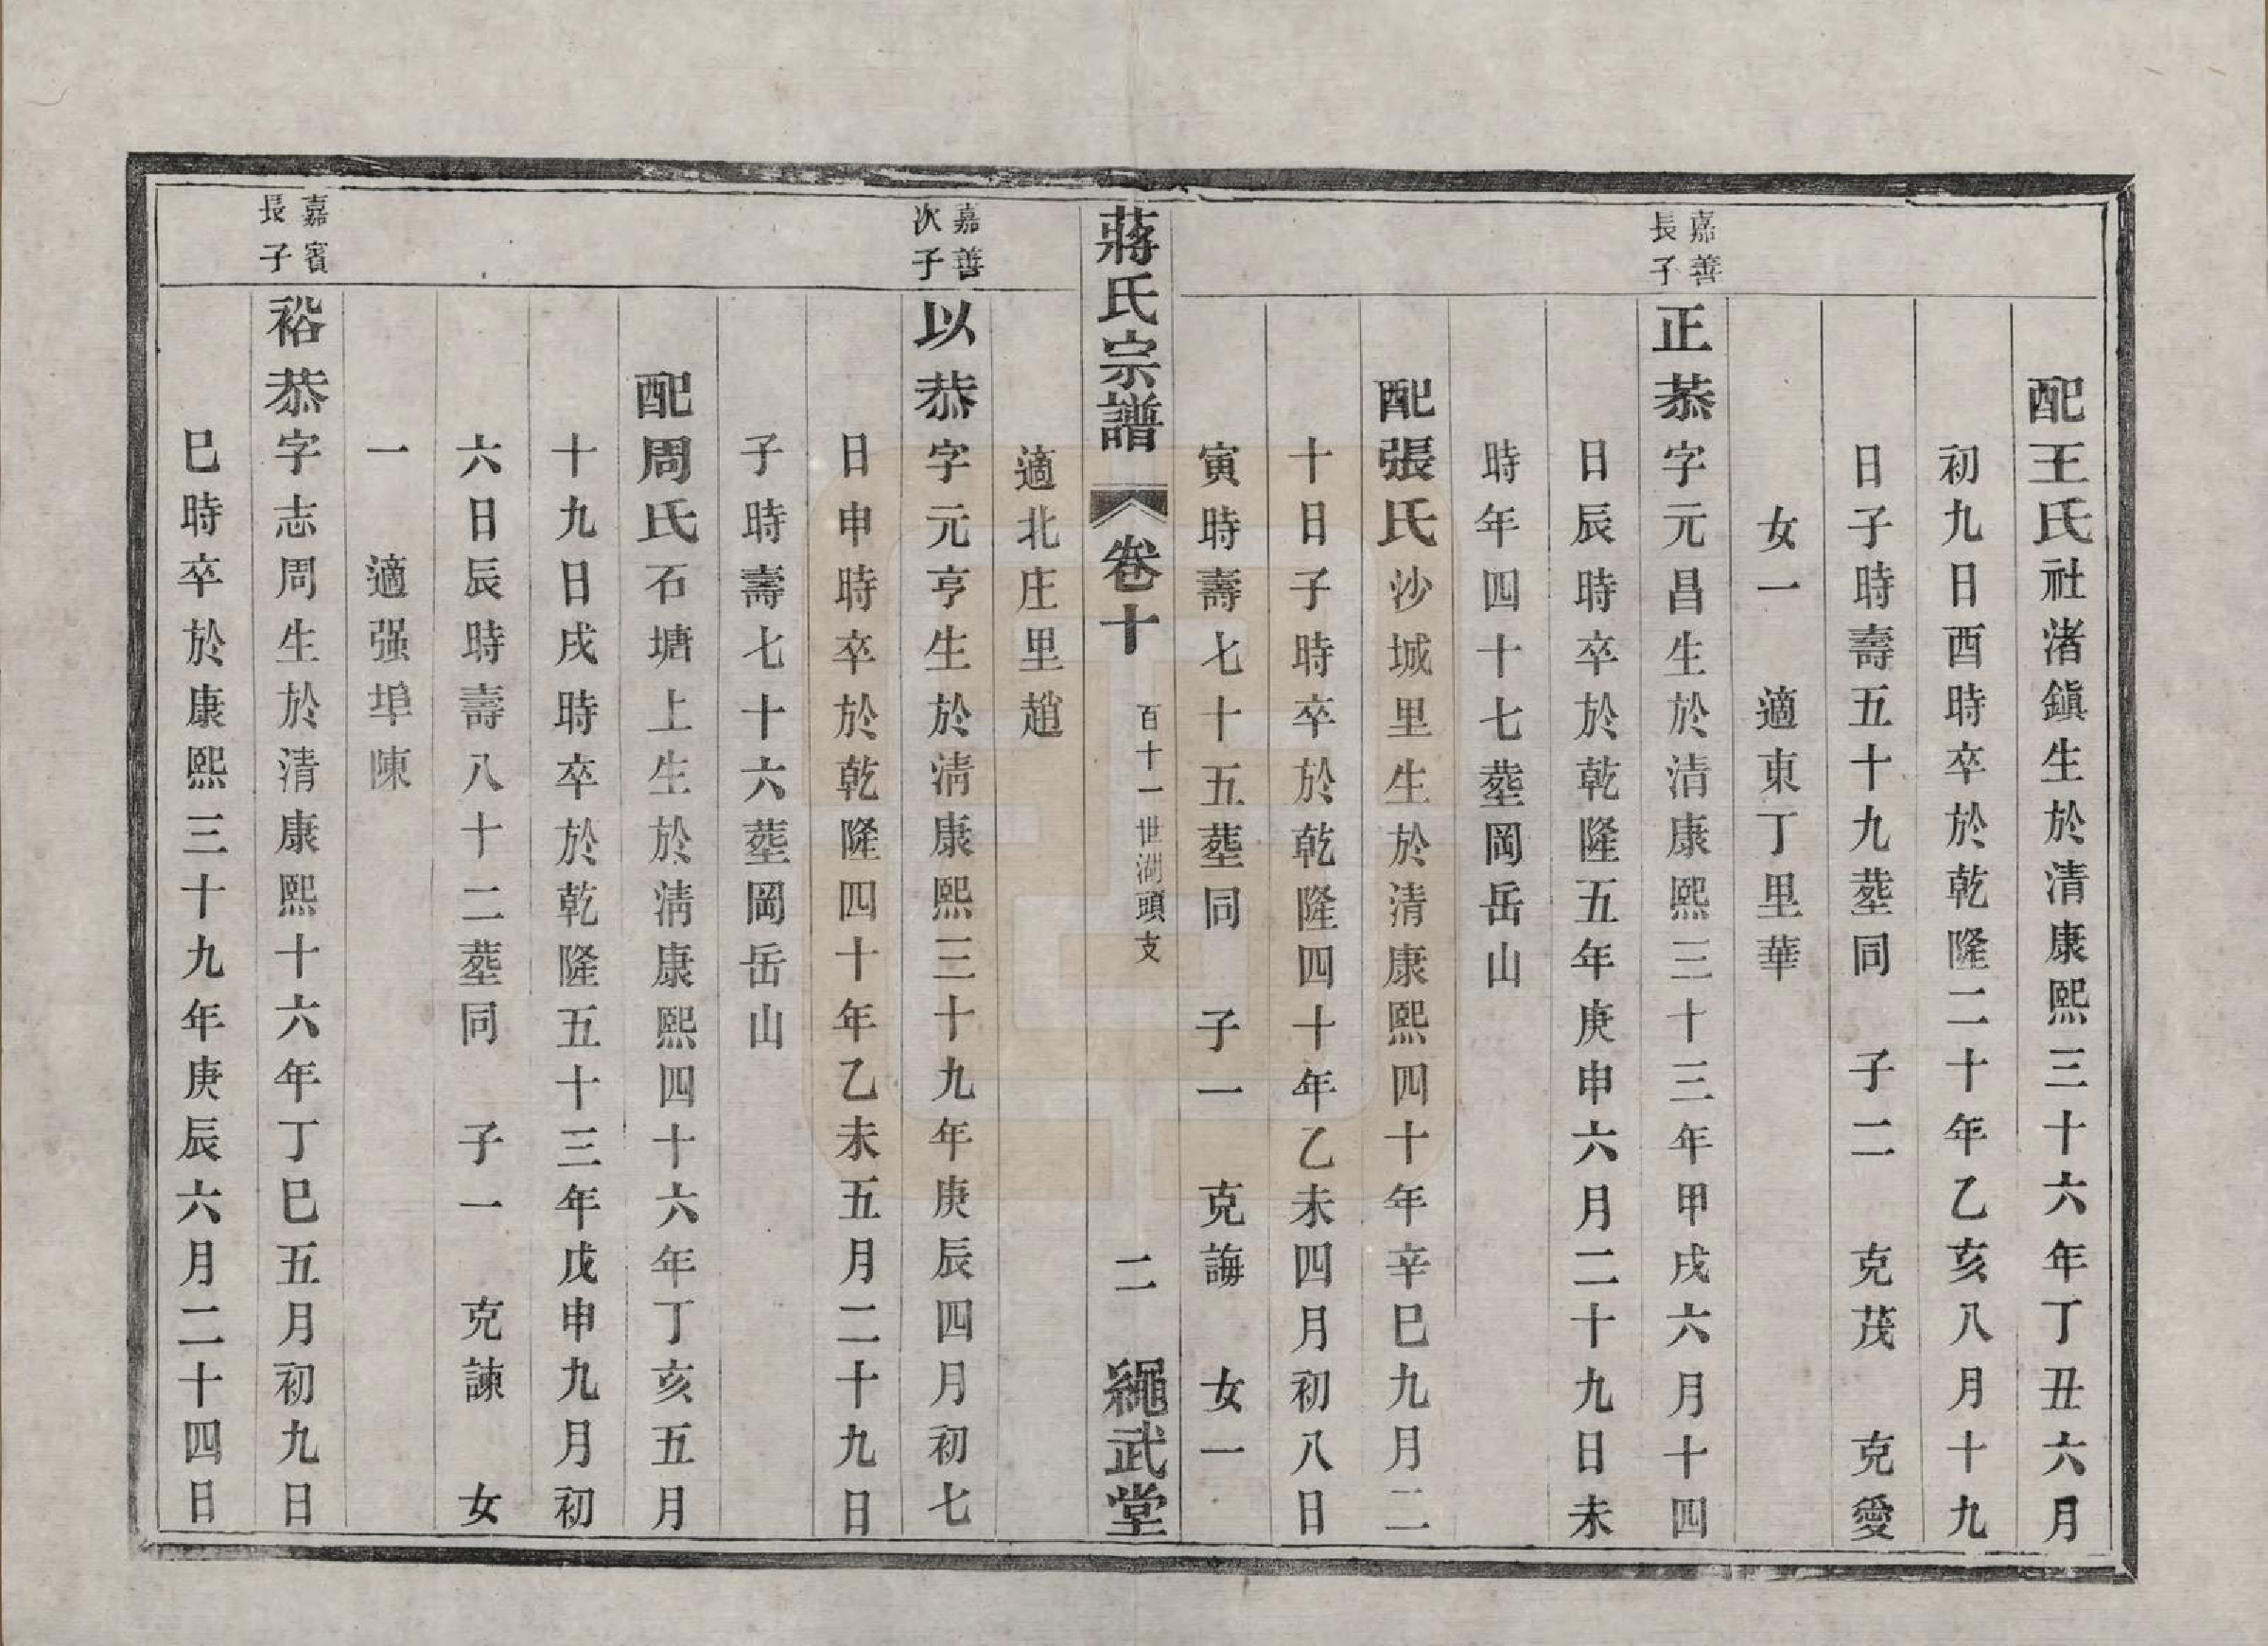 配王氏社渚鎮生於清康熙三十六年丁丑六月
初九日酉時卒於乾隆二十年乙亥八月十九
日子時壽五十九塟同　子二　克茂　克愛
女一　適東丁里華
嘉善
長子
正恭字元昌生於清康熙三十三年甲戌六月十四
日辰時卒於乾隆五年庚申六月二十九日未
時年四十七塟岡岳山
配張氏沙城里生於清康熙四十年辛巳九月二
十日子時卒於乾隆四十年乙未四月初八日
寅時壽七十五塟同　子一　克誨　女一
蔣氏宗譜　卷十　百十一世湖頭支　二　繩武堂
適北庄里趙
嘉善
次子
以恭字元亨生於清康熙三十九年庚辰四月初七
日申時卒於乾隆四十年乙未五月二十九日
子時壽七十六塟岡岳山
配周氏石塘上生於清康熙四十六年丁亥五月
十九日戌時卒於乾隆五十三年戊申九月初
六日辰時壽八十二塟同　子一　克諫　女
一　適强埠陳
嘉賓
長子
裕恭字志周生於清康熙十六年丁巳五月初九日
巳時卒於康熙三十九年庚辰六月二十四日